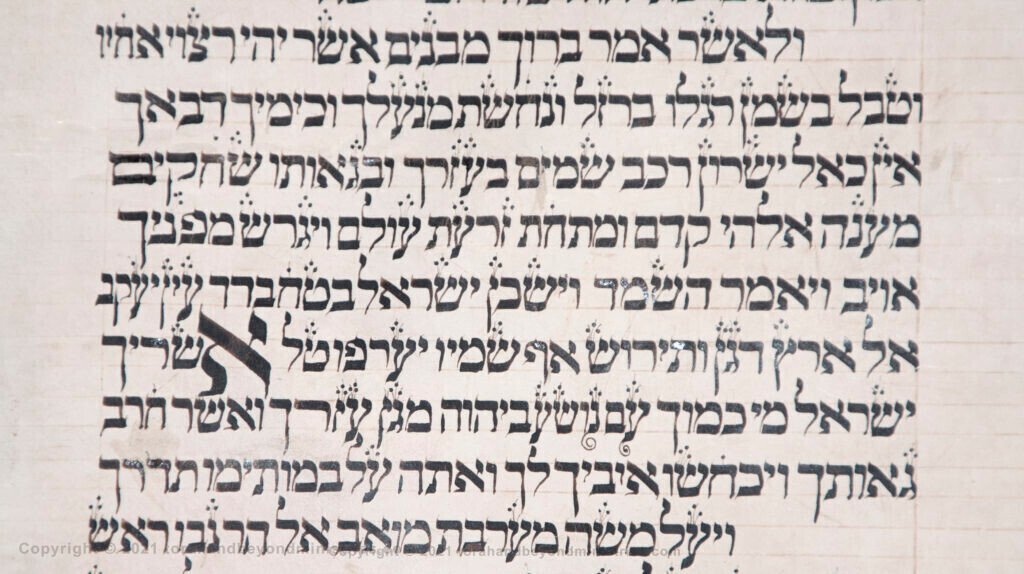 ולאשר אמר ברוך מבנים אשר יהי רצוי אחיו
וטבל בשמן רגלו ברזל ונחשת מנעלך וכימיך דבאך
אין כאל ישרון רכב שמים בעזרך ובגאותו שחקים
מענה אלהי קדם ומתחת זרעת עולם ויגרש מפניך
אויב ויאמר השמד וישכן ישראל בטח בדד עין יעקב
אל ארץ דגן ותירוש אף שמיו יערפו טל אשריך
ישראל מי כמוך עם נושע ביהוה מגן עזרך ואשר חרב
גאותך ויכחשו איביך לך ואתה על במותימו תדרך
ויעל משה מערבת מואב אל הר נבו ראש
Copyright © 2021